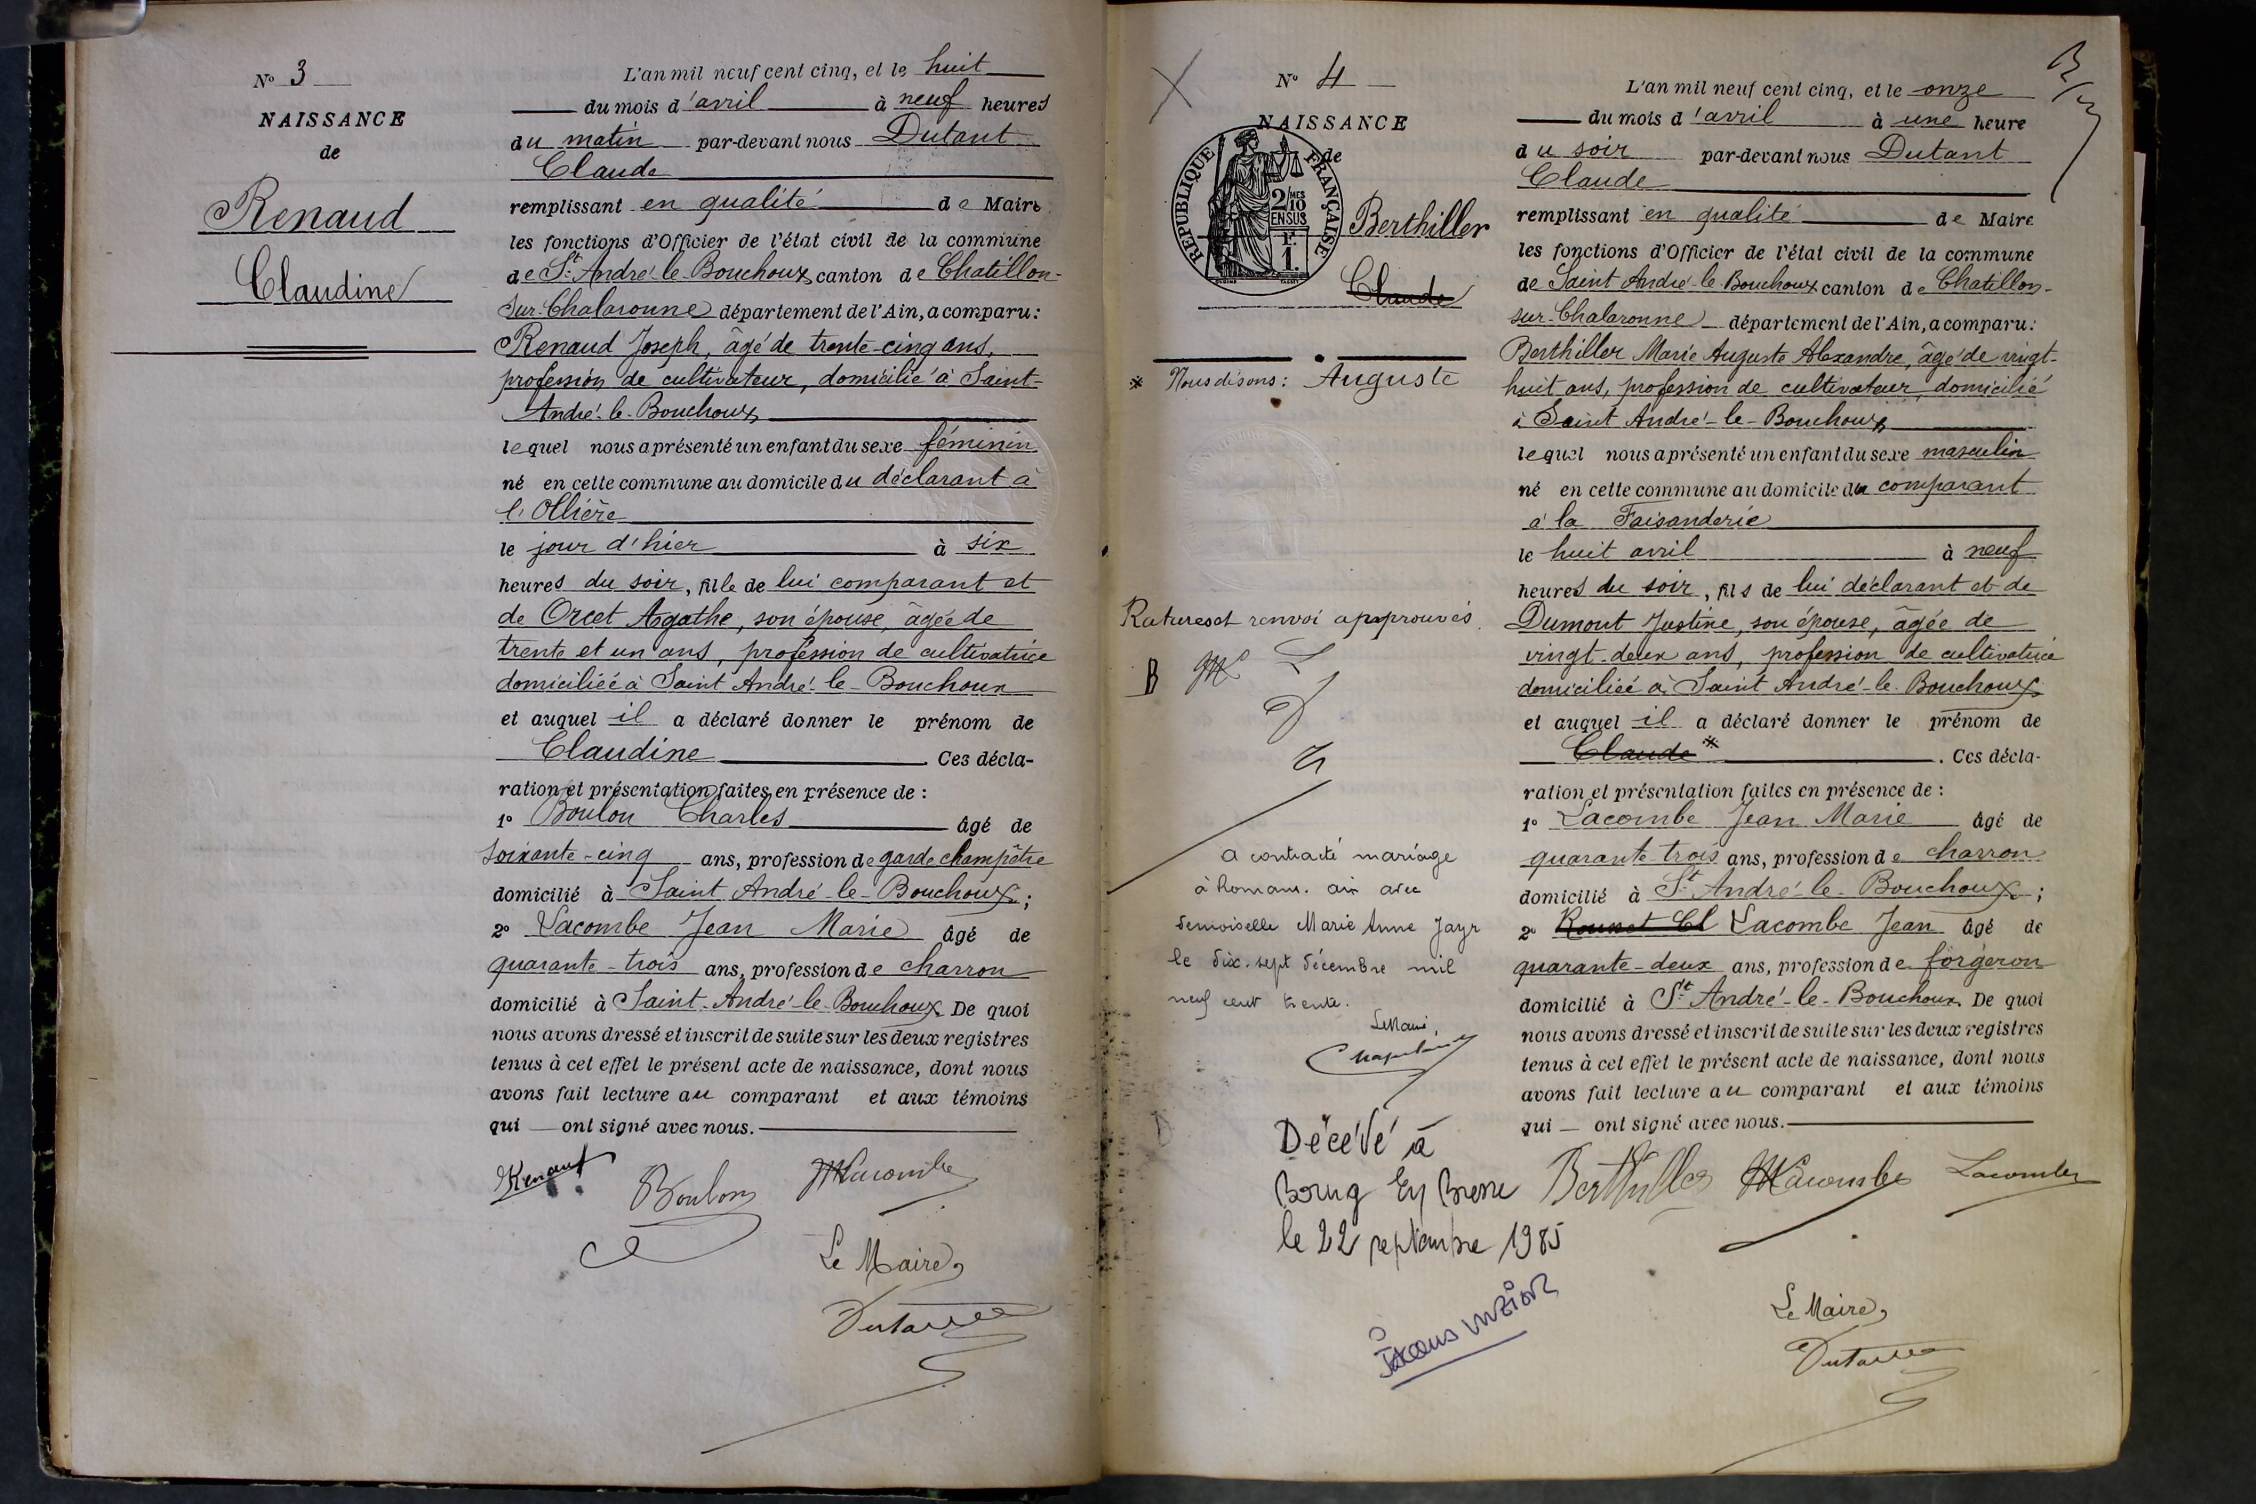 N° 3
NAISSANCE
de
Renaud
Claudine
L'an mil neuf cent cinq, et le huit
du mois d'avril à neuf heures
du matin par-devant nous Dutant
Claude
remplissant en qualité de Maire
les fonctions d'Officier de l'état civil de la commune
de St André-le-Bouchoux canton de Chatillon-
sur-Chalaronne département de l'Ain, a comparu:
Renaud Joseph, âgé de trente-cinq ans,
profession de cultivateur, domicilié à Saint-
André-le-Bouchoux
lequel nous a présenté un enfant du sexe féminin
né en cette commune au domicile du déclarant à
l'Ollière
le jour d'hier à six
heures du soir, fille de lui comparant et
de Orcet Agathe, son épouse, âgée de
trente et un ans, profession de cultivatrice
domiciliée à Saint André-le-Bouchoux
et auquel il a déclaré donner le prénom de
Claudine Ces décla-
ration et présentation faites en présence de :
1° Boulon Charles âgé de
soixante-cinq ans, profession de garde champêtre
domicilié à Saint André-le-Bouchoux ;
2° Lacombe Jean Marie âgé de
quarante-trois ans, profession de charron
domicilié à Saint-André-le-Bouchoux De quoi
nous avons dressé et inscrit de suite sur les deux registres
tenus à cet effet le présent acte de naissance, dont nous
avons fait lecture au comparant et aux témoins
qui ont signé avec nous.
Renaud Boulon JMLacombe
Le Maire,
Dutant
N° 4
NAISSANCE
de
RÉPUBLIQUE FRANÇAISE
2/10 MES
EN SUS
F.
1.
Berthiller
Claude
* Nous disons: Auguste
Ratures et renvoi approuvés.
B
a contracté mariage
à Romans. ain avec
demoiselle Marie Anne Jayr
le dix-sept décembre mil
neuf cent trente.
Le Maire,
Décédé à
Bourg En Bresse
le 22 septembre 1985
L'an mil neuf cent cinq, et le onze
du mois d'avril à une heure
du soir par-devant nous Dutant
Claude
remplissant en qualité de Maire
les fonctions d'Officier de l'état civil de la commune
de Saint André-le-Bouchoux canton de Chatillon-
sur-Chalaronne département de l'Ain, a comparu:
Berthiller Marie Auguste Alexandre, âgé de vingt-
huit ans, profession de cultivateur, domicilié
à Saint André-le-Bouchoux
lequel nous a présenté un enfant du sexe masculin
né en cette commune au domicile du comparant
à la Faisanderie
le huit avril à neuf
heures du soir, fils de lui déclarant et de
Dumont Justine, son épouse, âgée de
vingt-deux ans, profession de cultivatrice
domiciliée à Saint André-le-Bouchoux
et auquel il a déclaré donner le prénom de
Claude * . Ces décla-
ration et présentation faites en présence de :
1° Lacombe Jean Marie âgé de
quarante-trois ans, profession de charron
domicilié à St André-le-Bouchoux ;
2° Rousset Cl Lacombe Jean âgé de
quarante-deux ans, profession de forgeron
domicilié à St André-le-Bouchoux De quoi
nous avons dressé et inscrit de suite sur les deux registres
tenus à cet effet le présent acte de naissance, dont nous
avons fait lecture au comparant et aux témoins
qui ont signé avec nous.
Berthiller JMLacombe Lacombe
Le Maire,
Dutant